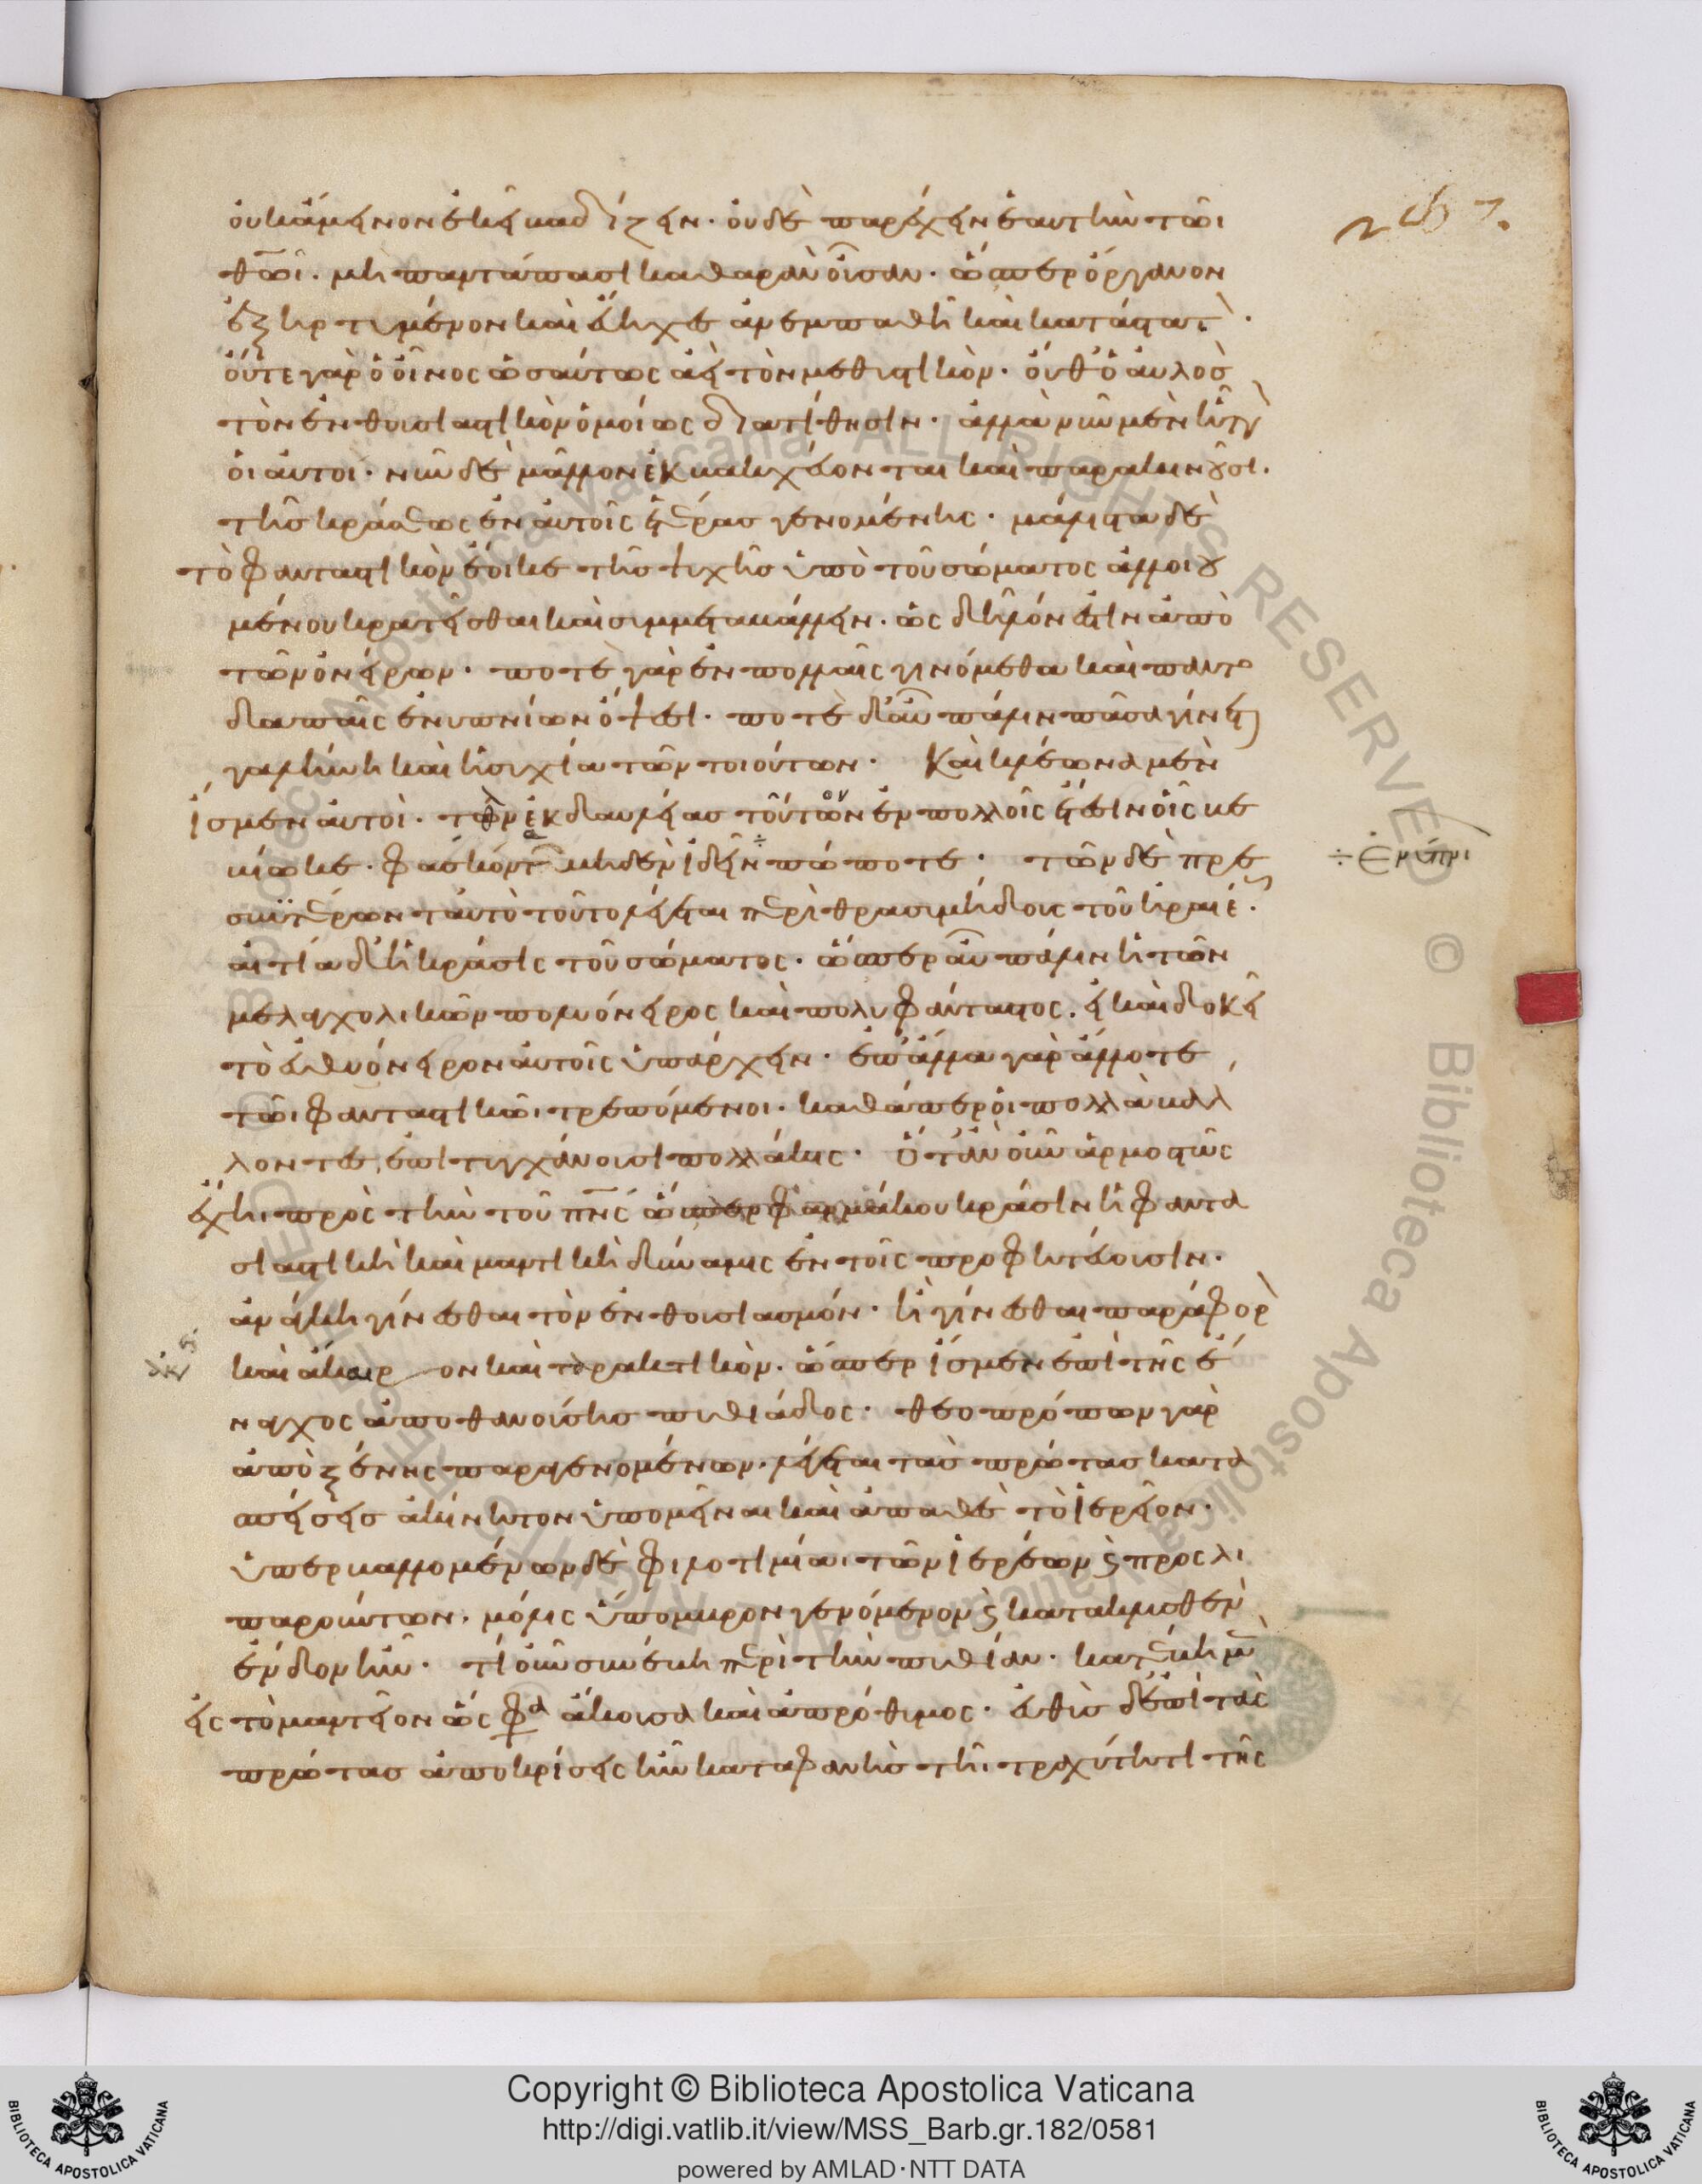 287.
οὐκ ἄμεινον ἐκεῖ βαδίζειν· οὐδὲ παρέχειν ἑαυτὴν τῶι
θῶι· μὴ παντάπασι καθαρὰν οὖσαν· ὥσπερ ὄργανον
ἐξηρτυμένον καὶ εὐηχὲ ἀνεμπαθῆ καὶ κατάστατ·
οὔτε γὰρ ὁ οἶνος ὡσαύτως ἀεὶ τὸν μεθυστικὸν· οὔθ' ὁ αὐλὸσ
τὸν ἐνθουσιαστικὸν ὁμοίως διατίθησιν· ἀλλὰ νῦν μὲν ἧττον
οἱ αὐτοὶ· νῦν δὲ μᾶλλον ἐκβακχεύονται καὶ παρακινοῦσι.
τῆσ κράσεως ἐν αὐτοῖς ἑτέρασ γενομένης· μάλιστα δὲ
τὸ φανταστικὸν ἔοικε τῆσ ψυχῆσ ὑπὸ τοῦ σώματος ἀλλοιου
μένου κρατεῖσθαι καὶ συμμεταβάλλειν· ὡς δῆλόν ἐστιν ἀπὸ
τῶν ὀνείρων· ποτὲ γὰρ ἐν πολλαῖς γινόμεθα καὶ παντο
δαπαῖς ἐνυπνίων ὄψεσι· ποτὲ δ' αὖ πάλιν πᾶσα γίνεται
γαλήνη καὶ ἡσυχία τῶν τοιούτων· Καὶ κλέωνα μὲν
ἴσμεν αὐτοὶ· τὸν ἐκ δαυλείασ τοῦτον ἐν πολλοῖς ἔτεσιν οἷς βε
βίωκε· φάσκοντα μηδὲν ἰδεῖν πώποτε· τῶν δὲ πρε
÷ ἐνύπνι
σβυτέρων ταὐτὸ τοῦτο λέγεται περὶ θρασυμήδους τοῦ ἡραιέ·
αἰτία δ' ἡ κράσις τοῦ σώματος· ὥσπερ αὖ πάλιν ἡ τῶν
μελαγχολικῶν πολυόνειρος καὶ πολυφάνταστος· εἰ καὶ δοκεῖ
τὸ εὐθυόνειρον αὐτοῖς ὑπάρχειν· ἐπ' ἄλλα γὰρ ἄλλοτε
τῶι φανταστικῶι τρεπόμενοι· καθάπερ οἱ πολλὰ βάλ
λοντες, ἐπιτυγχάνουσι πολλάκις· Ὅταν οὖν ἁρμοστῶς
ἔχηι πρὸς τὴν τοῦ πνς ὥσπερ φαρμάκου κράσιν ἡ φαντα
σιαστικὴ καὶ μαντικὴ δύναμις ἐν τοῖς προφητεύουσιν.
ἀνάγκη γίνεσθαι τὸν ἐνθουσιασμόν· ἢ γίνεσθαι παράφορον
καὶ ἀκαιρ ον καὶ ταρακτικὸν· ὥσπερ ἴσμεν ἐπὶ τῆς ἐ
ναγχος ἀποθανούσησ πυθιάδος· θεοπρόπων γὰρ
ἀπὸ ξένης παραγενομένων· λέγεται τὰσ πρώτασ κατα
σπείσεισ ἀκίνητον ὑπομεῖναι καὶ ἀπαθὲ τὸ ἱερεῖον·
ὑπερβαλλομένων δὲ φιλοτιμίαι τῶν ἱερέων καὶ προσλι
παρούντων· μόλις ὑπόμβρον γενόμενον καὶ κατακλυσθὲν
ἐνδοῦν�αι· τί οὖν συνέβη περὶ τὴν πυθίαν· κατέβη μὲν
εἰς τὸ μαντεῖον ὥς φα ἄκουσα καὶ ἀπρόθυμος· εὐθὺσ δ' ἐπὶ τὰς
πρώτασ ἀποκρίσεις ἦν καταφανὴσ τῆι τραχύτητι τῆς
Copyright © Biblioteca Apostolica Vaticana
http://digi.vatlib.it/view/MSS_Barb.gr.182/0581
powered by AMLAD·NTT DATA